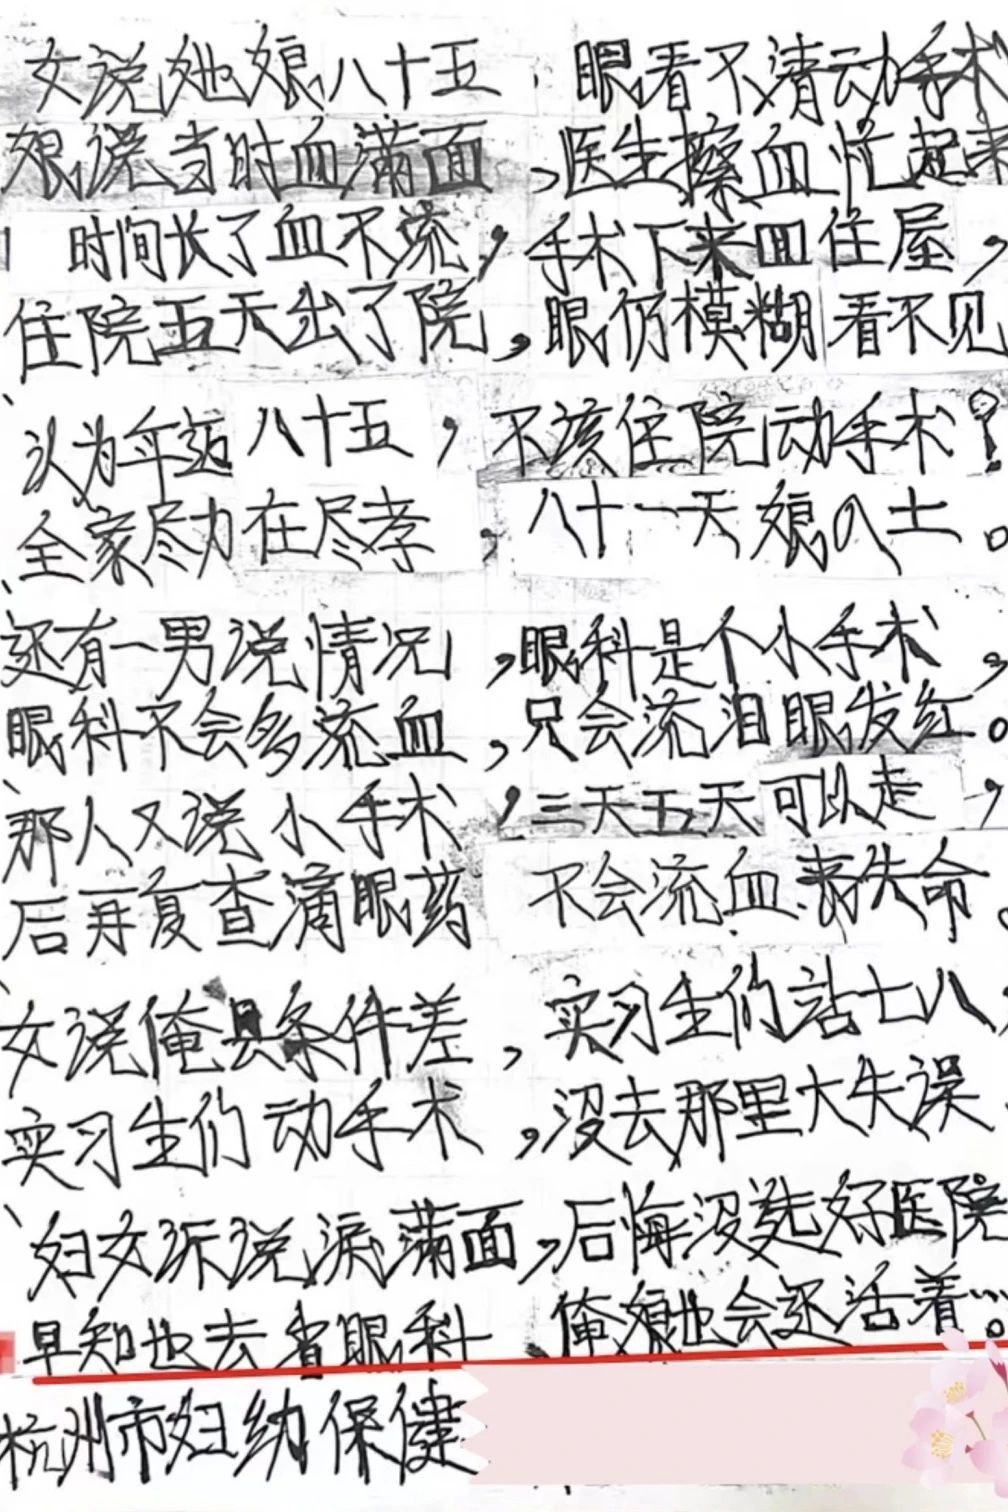 女说她娘八十五 眼看不清动手术
娘说当时血满面,医生擦血忙起来
时间长了血不流,手术下来血住屋,
住院五天出了院,眼仍模糊看不见
、认为年迈八十五,不该住院动手术?
全家尽力在尽孝,八十一天娘入土。
、还有一男说情况,眼科是个小手术,
眼科不会多流血,只会流泪眼发红。
那人又说小手术,三天五天可以走,
后再复查滴眼药 不会流血丧失命。
、女说俺县条件差,实习生们站七八,
实习生们动手术,没去那里大失误
、妇女诉说泪满面,后悔没选好医院
早知也去省眼科、俺娘也会还活着…。
杭州市妇幼保健